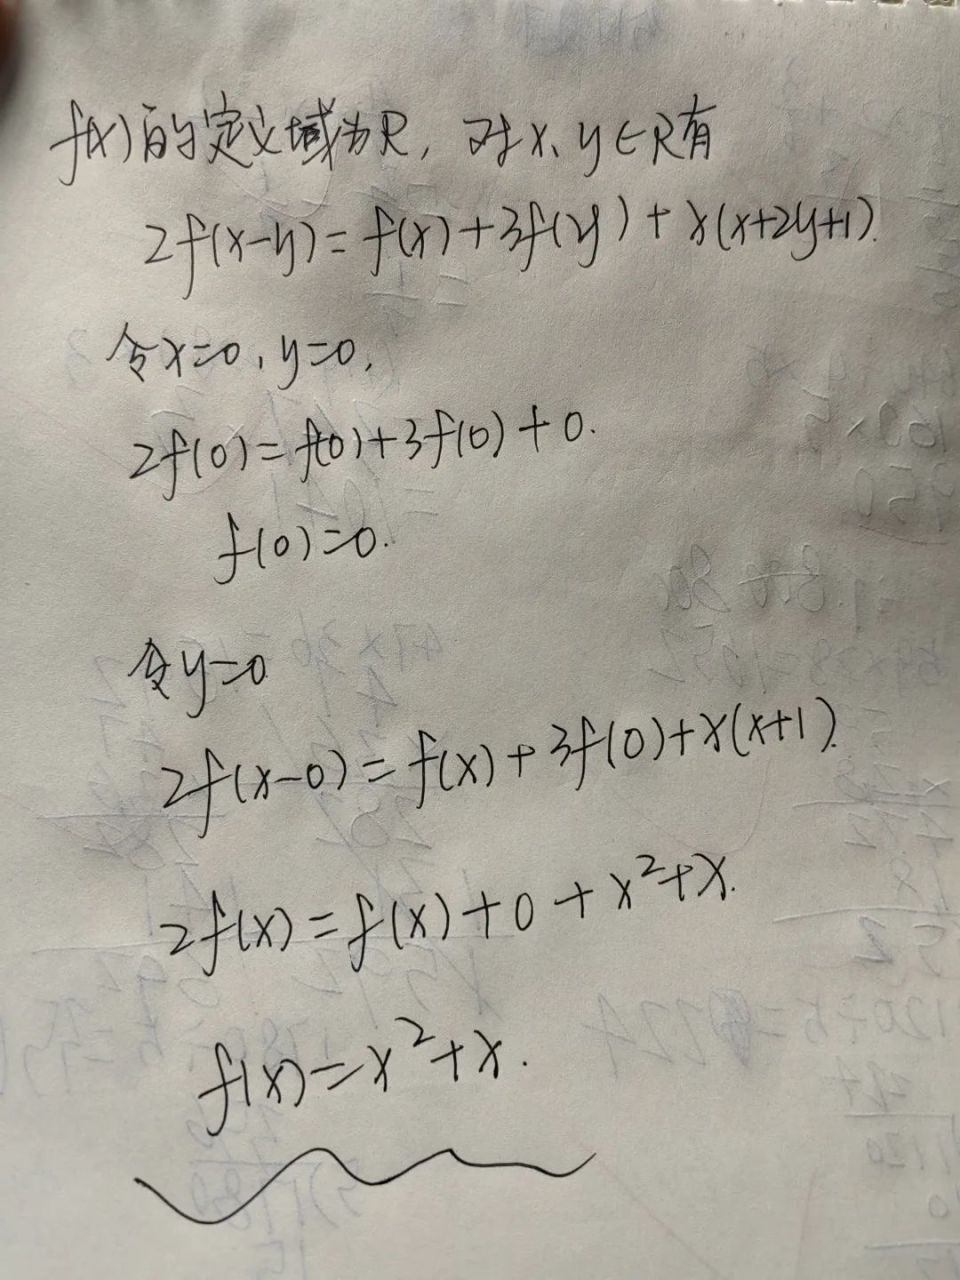 f(x)的定义域为R, 对x、y∈R有
2f(x-y)=f(x)+3f(y)+x(x+2y+1).
令x=0, y=0,
2f(0)=f(0)+3f(0)+0.
f(0)=0.
令y=0
2f(x-0)=f(x)+3f(0)+x(x+1).
2f(x)=f(x)+0+x²+x.
f(x)=x²+x.